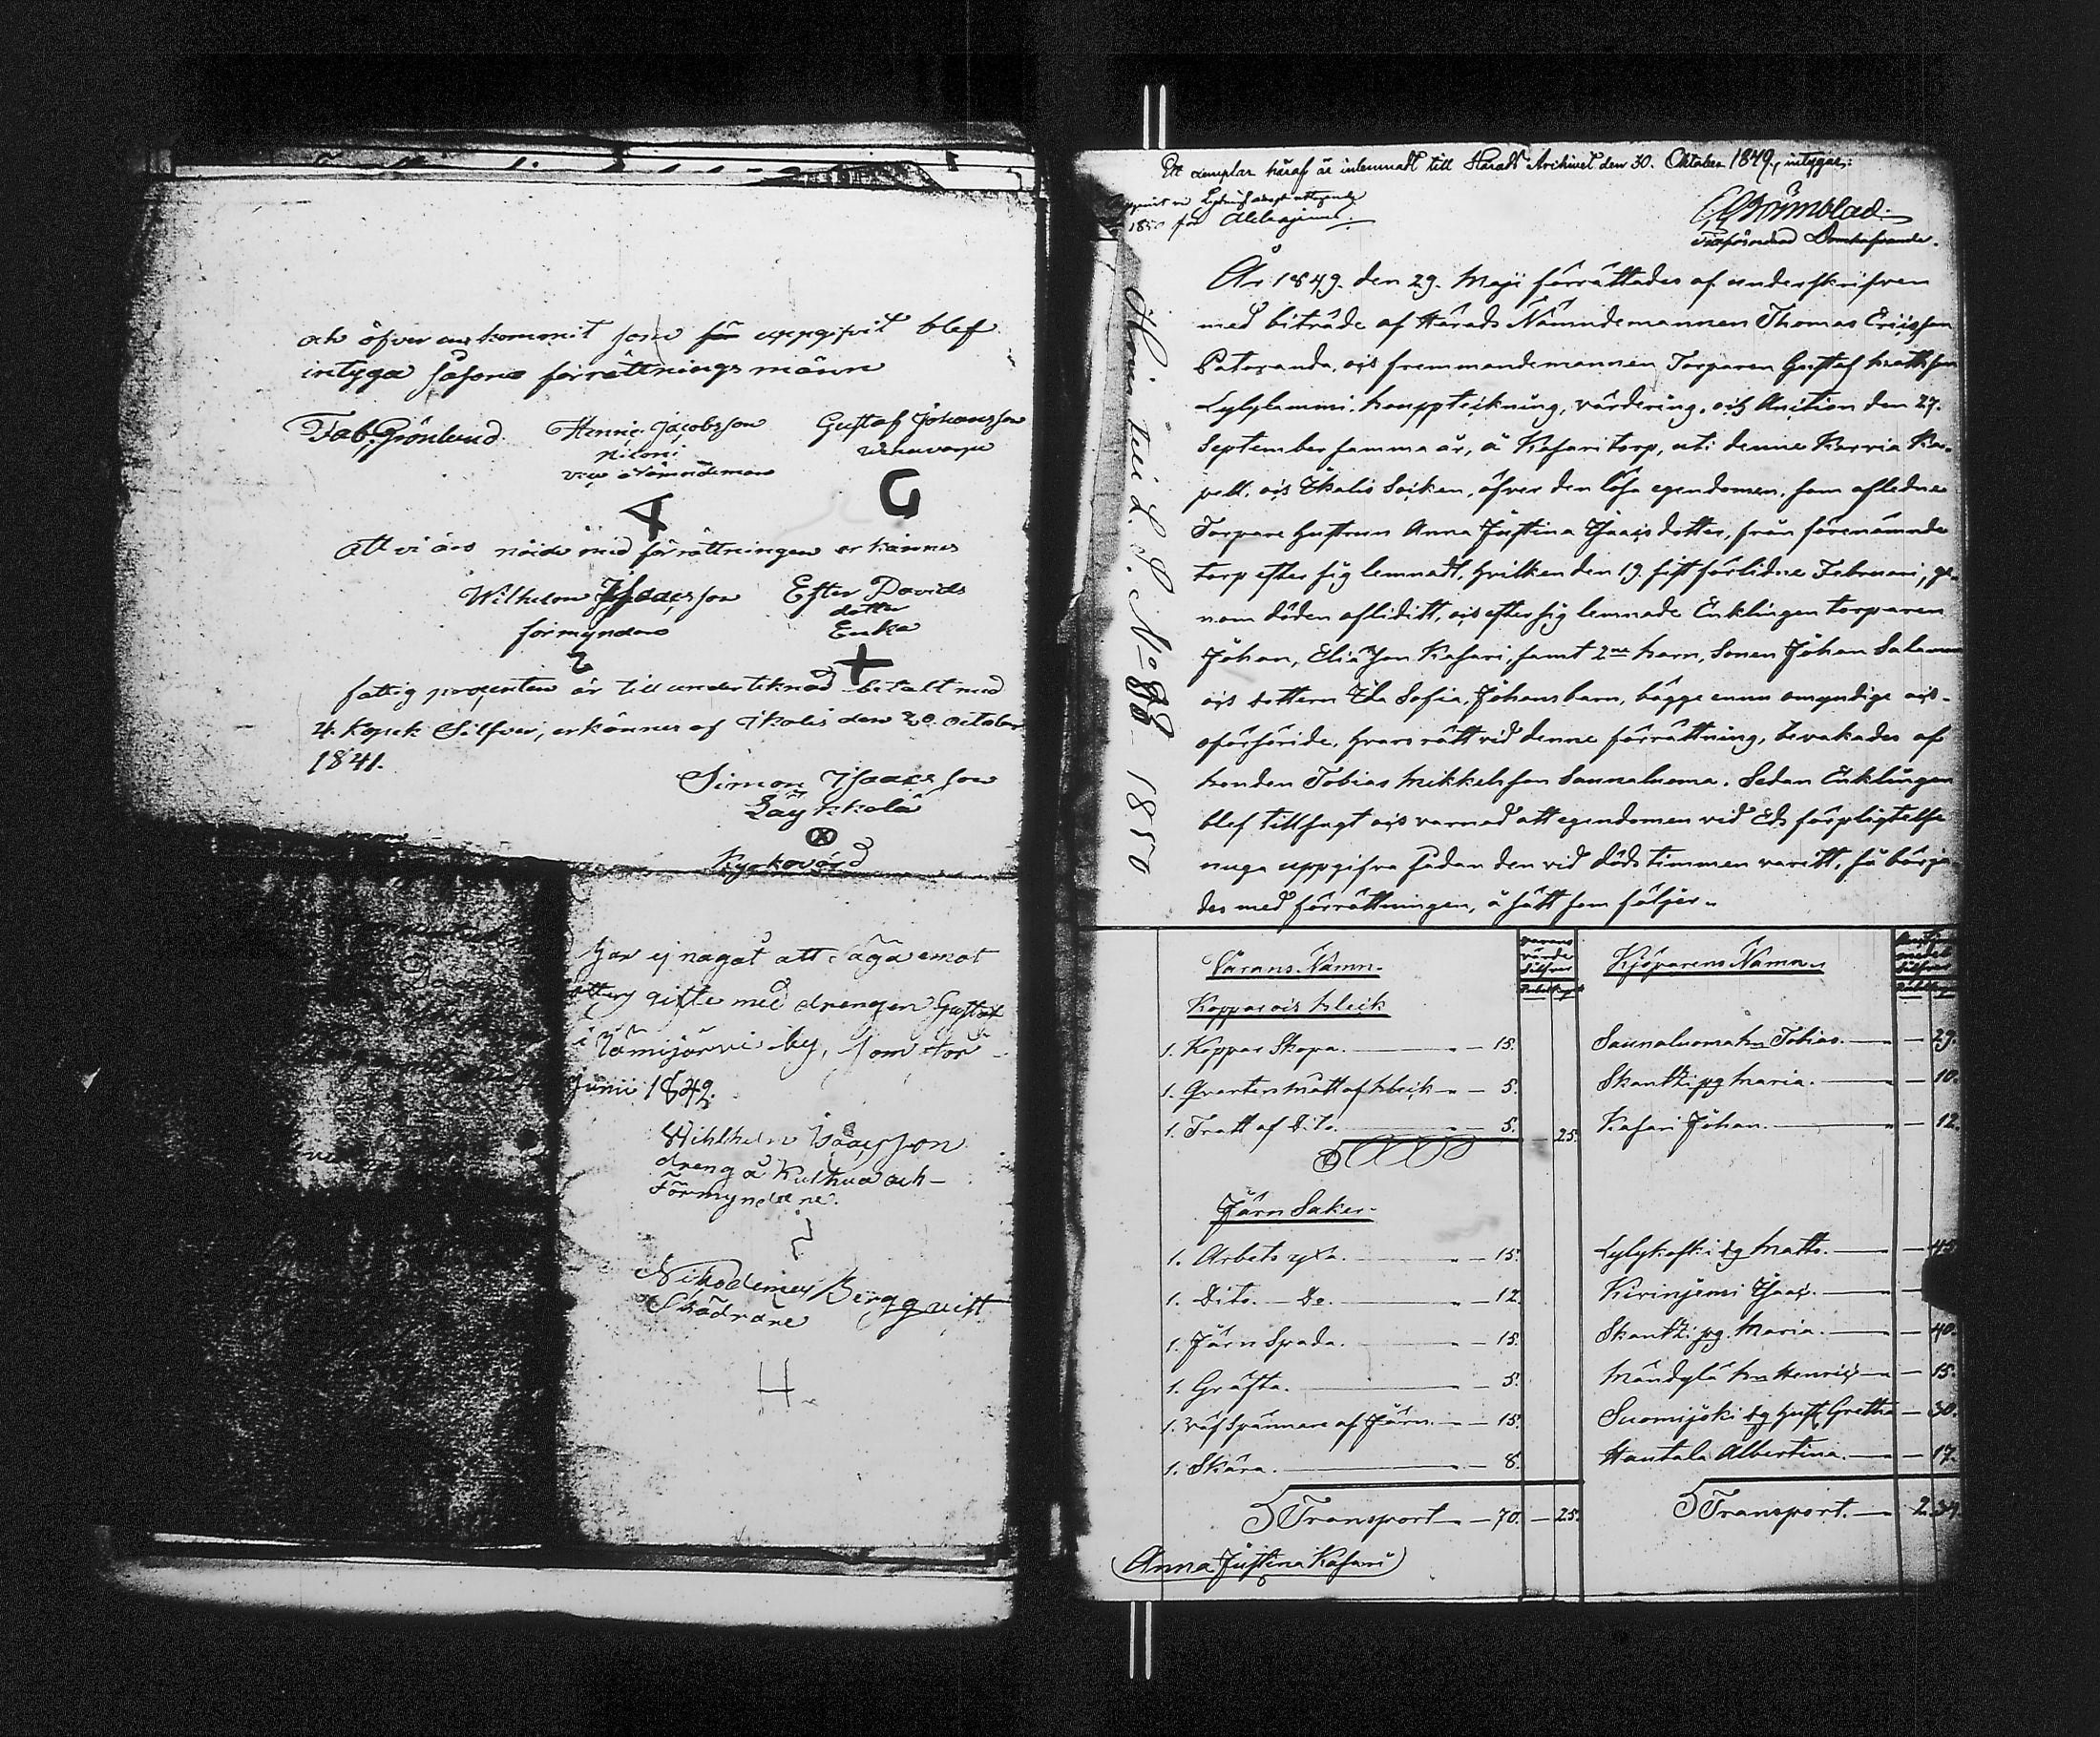 och öfverenskommit som uppgifvit blef
intyga såsom förrättningsmänn
Fab. Grönlund
Henric Jacobsson
Niconi
vice Nämndeman
Gustaf Johansson
G
Att vi äro nöide med förrättningen erkännes
Wilhelm Isacsson
förmyndare
Ester Davids
dotter
Enka
fattig procenten är till undertecknad betalt med
4. Kopek Silfver, erkännes af Ikalis den 20 October
1841.
Simon Isaacsson
Läykkälä
Kyrkovärd
har ej nagåt att säga emot
gifte med drengen Gustaf
i Jämijärvi by, som stor
Junii 1842.
Wihlhelm Isaacsson
dreng å Kulhua och
Förmyndare.
Nikodemus Bergqvist
Skädrare
H
Ett exemplar häraf är inlemnadt till Härads Archivet den 30. Oktober 1849, intygar:
1850 för
År 1849. den 29. Maji förrättades af underskrifven
med biträde af Härads Nämndemannen Thomas Ericsson
Patoranda, och fremmandemannen Torparen Gustaf Mattsson
Lylylammi, bouppteckning, värdering, och Auction den 27.
September samma år, å Kasari torp, uti denne Karvia Ka-
pell, och Ikalis Socken, öfver den lösa egendomen, som aflidne
Torpare hustrun Anna Justina Isaacsdotter, från förenämnde
torp efter sig lemnadt, hvilken den 19. sistförlidne Februari, ge-
nom döden afliditt, och efter sig lemnade Enklingen torparen
Johan, Eliasson Kasari, samt 2ne barn, Sonen Johan Salamon
och dottern Eva Sofia, Johansbarn, bägge ennu omyndige och
oförsöride, hvars rätt vid denne förrättning, bevakades af
bonden Tobias Mikkelsson Saunaluoma. Sedan Enklingen
blef tillsagt och varnad att egendomen vid Eds förpligtelse
noga uppgifva sådan den vid dödstimmen varitt, så börja-
des med förrättningen, å sätt som följer.
No 88 1850
Varans Namn.
Kjöparens Namn.
Koppar och bleck
1. Koppar Skopa. — 15. Saunaluoma bn Tobias. — 29.
1. Qvarters mått af bleck — 5. Skantzi pg Maria. — 10.
1. Tratt af Dito. — 5. — 25. Kasari Johan. — 12.
Järn Saker.
1. Arbets yxa. — 15. Lylykoski dg Matts. — 45
1. Dito. — Do. — 12. Kirinjemi Isaac. —
1. Järn Spada. — 15. Skantzi pg. Maria. — 40.
1. Gräfta. — 5. Mändylä bn Henric — 15.
1. Väfspännare af Järn. — 15. Suomijoki dg hust. Gretha — 30.
1. Skära. — 8. Hautala Albertina. — 17.
Transport — 70. — 25. Transport. — 2.39.
(Anna Justina Kasari)